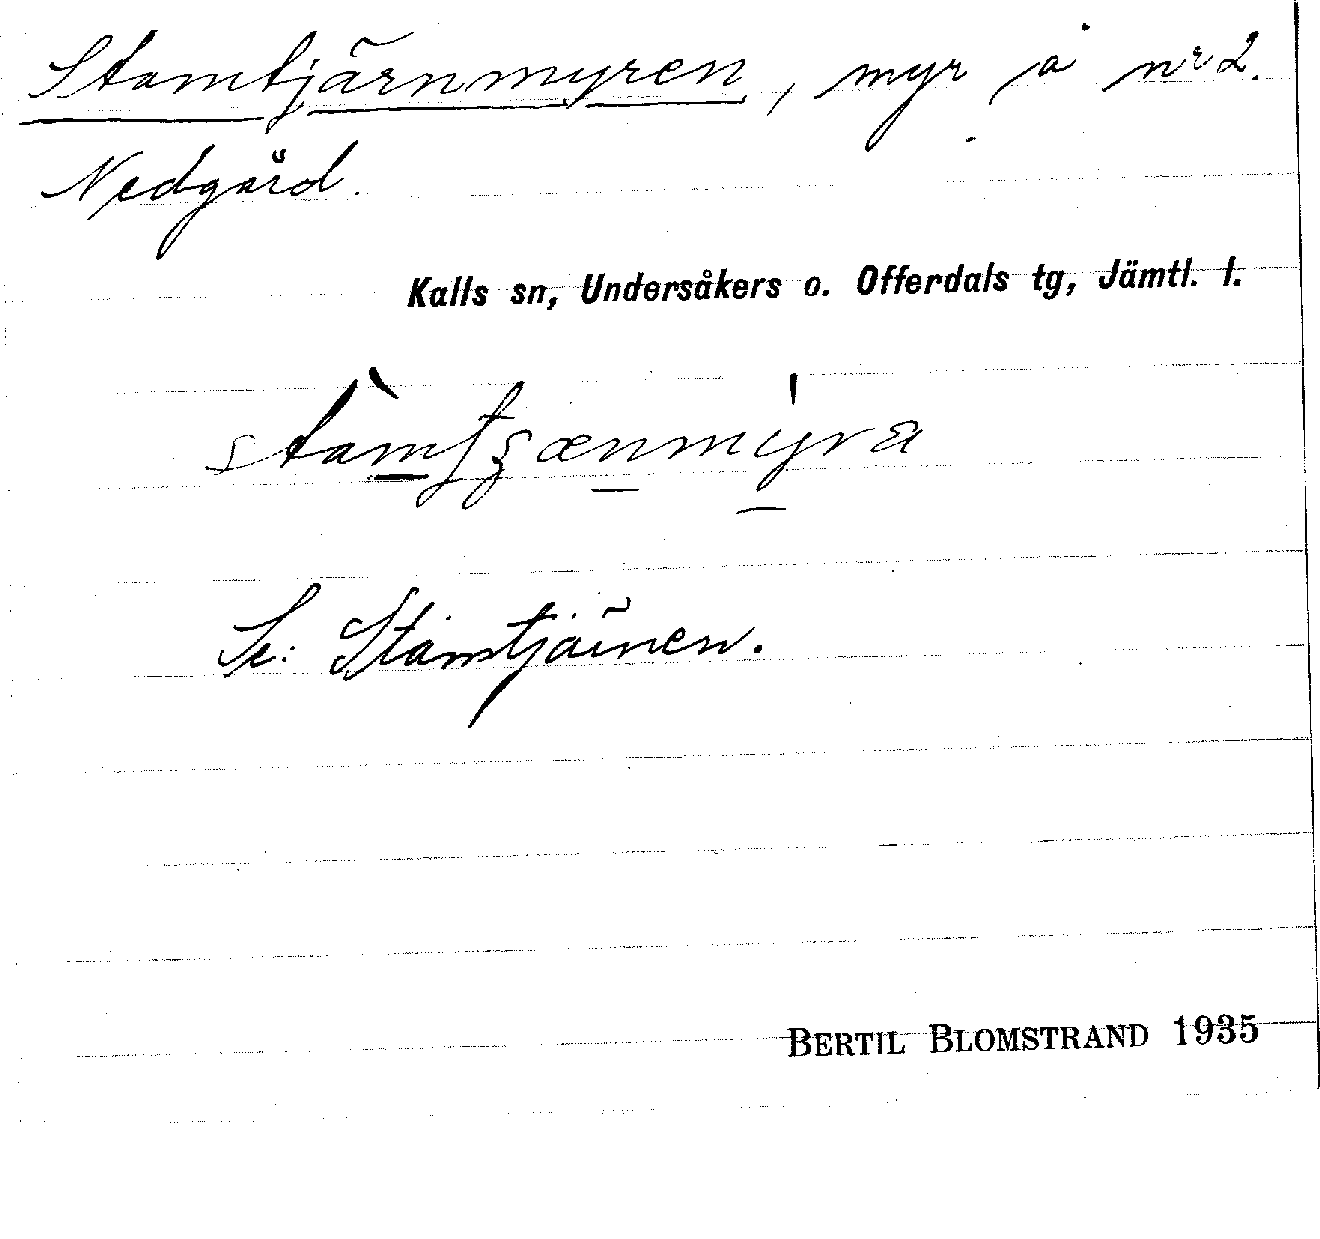 Stamtjärnmyren, myr å nr 2.
Nedgård.
Kalls sn, Undersåkers o. Offerdals tg, Jämtl. l.
Se: Stamtjärnen.
BERTIL BLOMSTRAND 1935